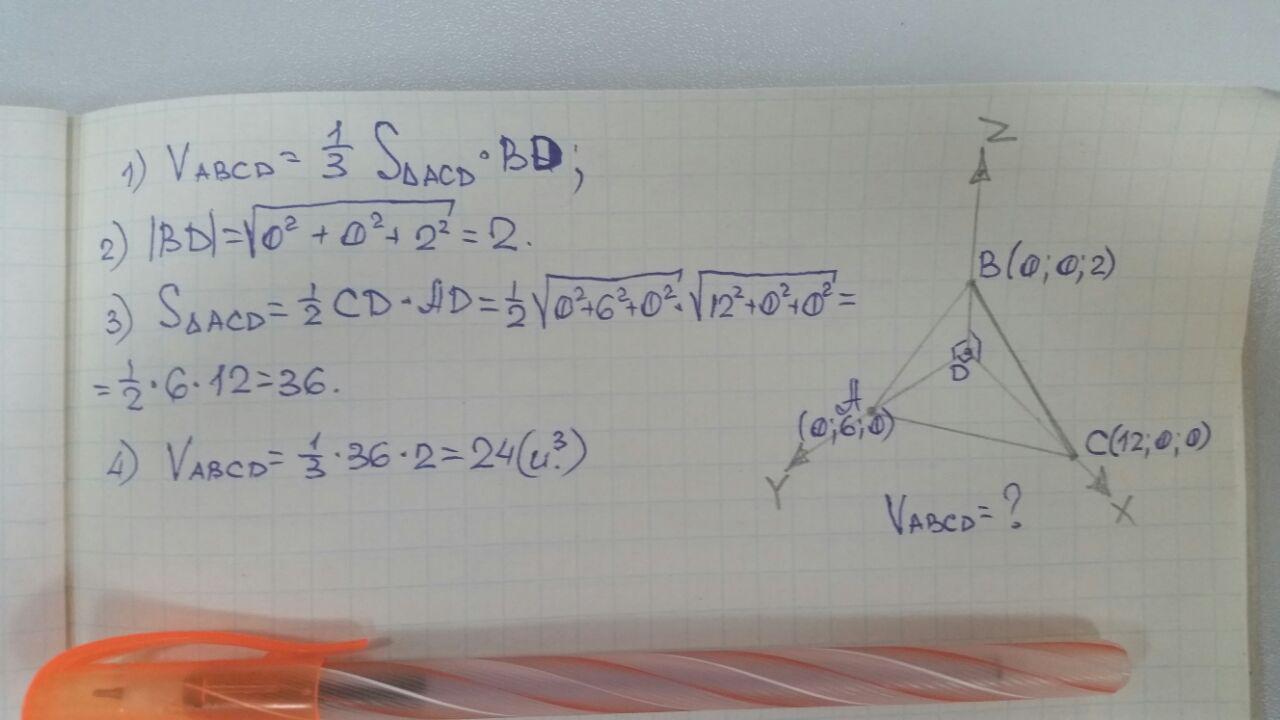 1) V_ABCD = 1/3 S_ΔACD · BD;
2) |BD| = √(0² + 0² + 2²) = 2.
3) S_ΔACD = 1/2 CD · AD = 1/2 √(0²+6²+0²) · √(12²+0²+0²) =
= 1/2 · 6 · 12 = 36.
4) V_ABCD = 1/3 · 36 · 2 = 24 (u.³)
Z
B(0;0;2)
D
A
(0;6;0)
C(12;0;0)
Y
X
V_ABCD = ?